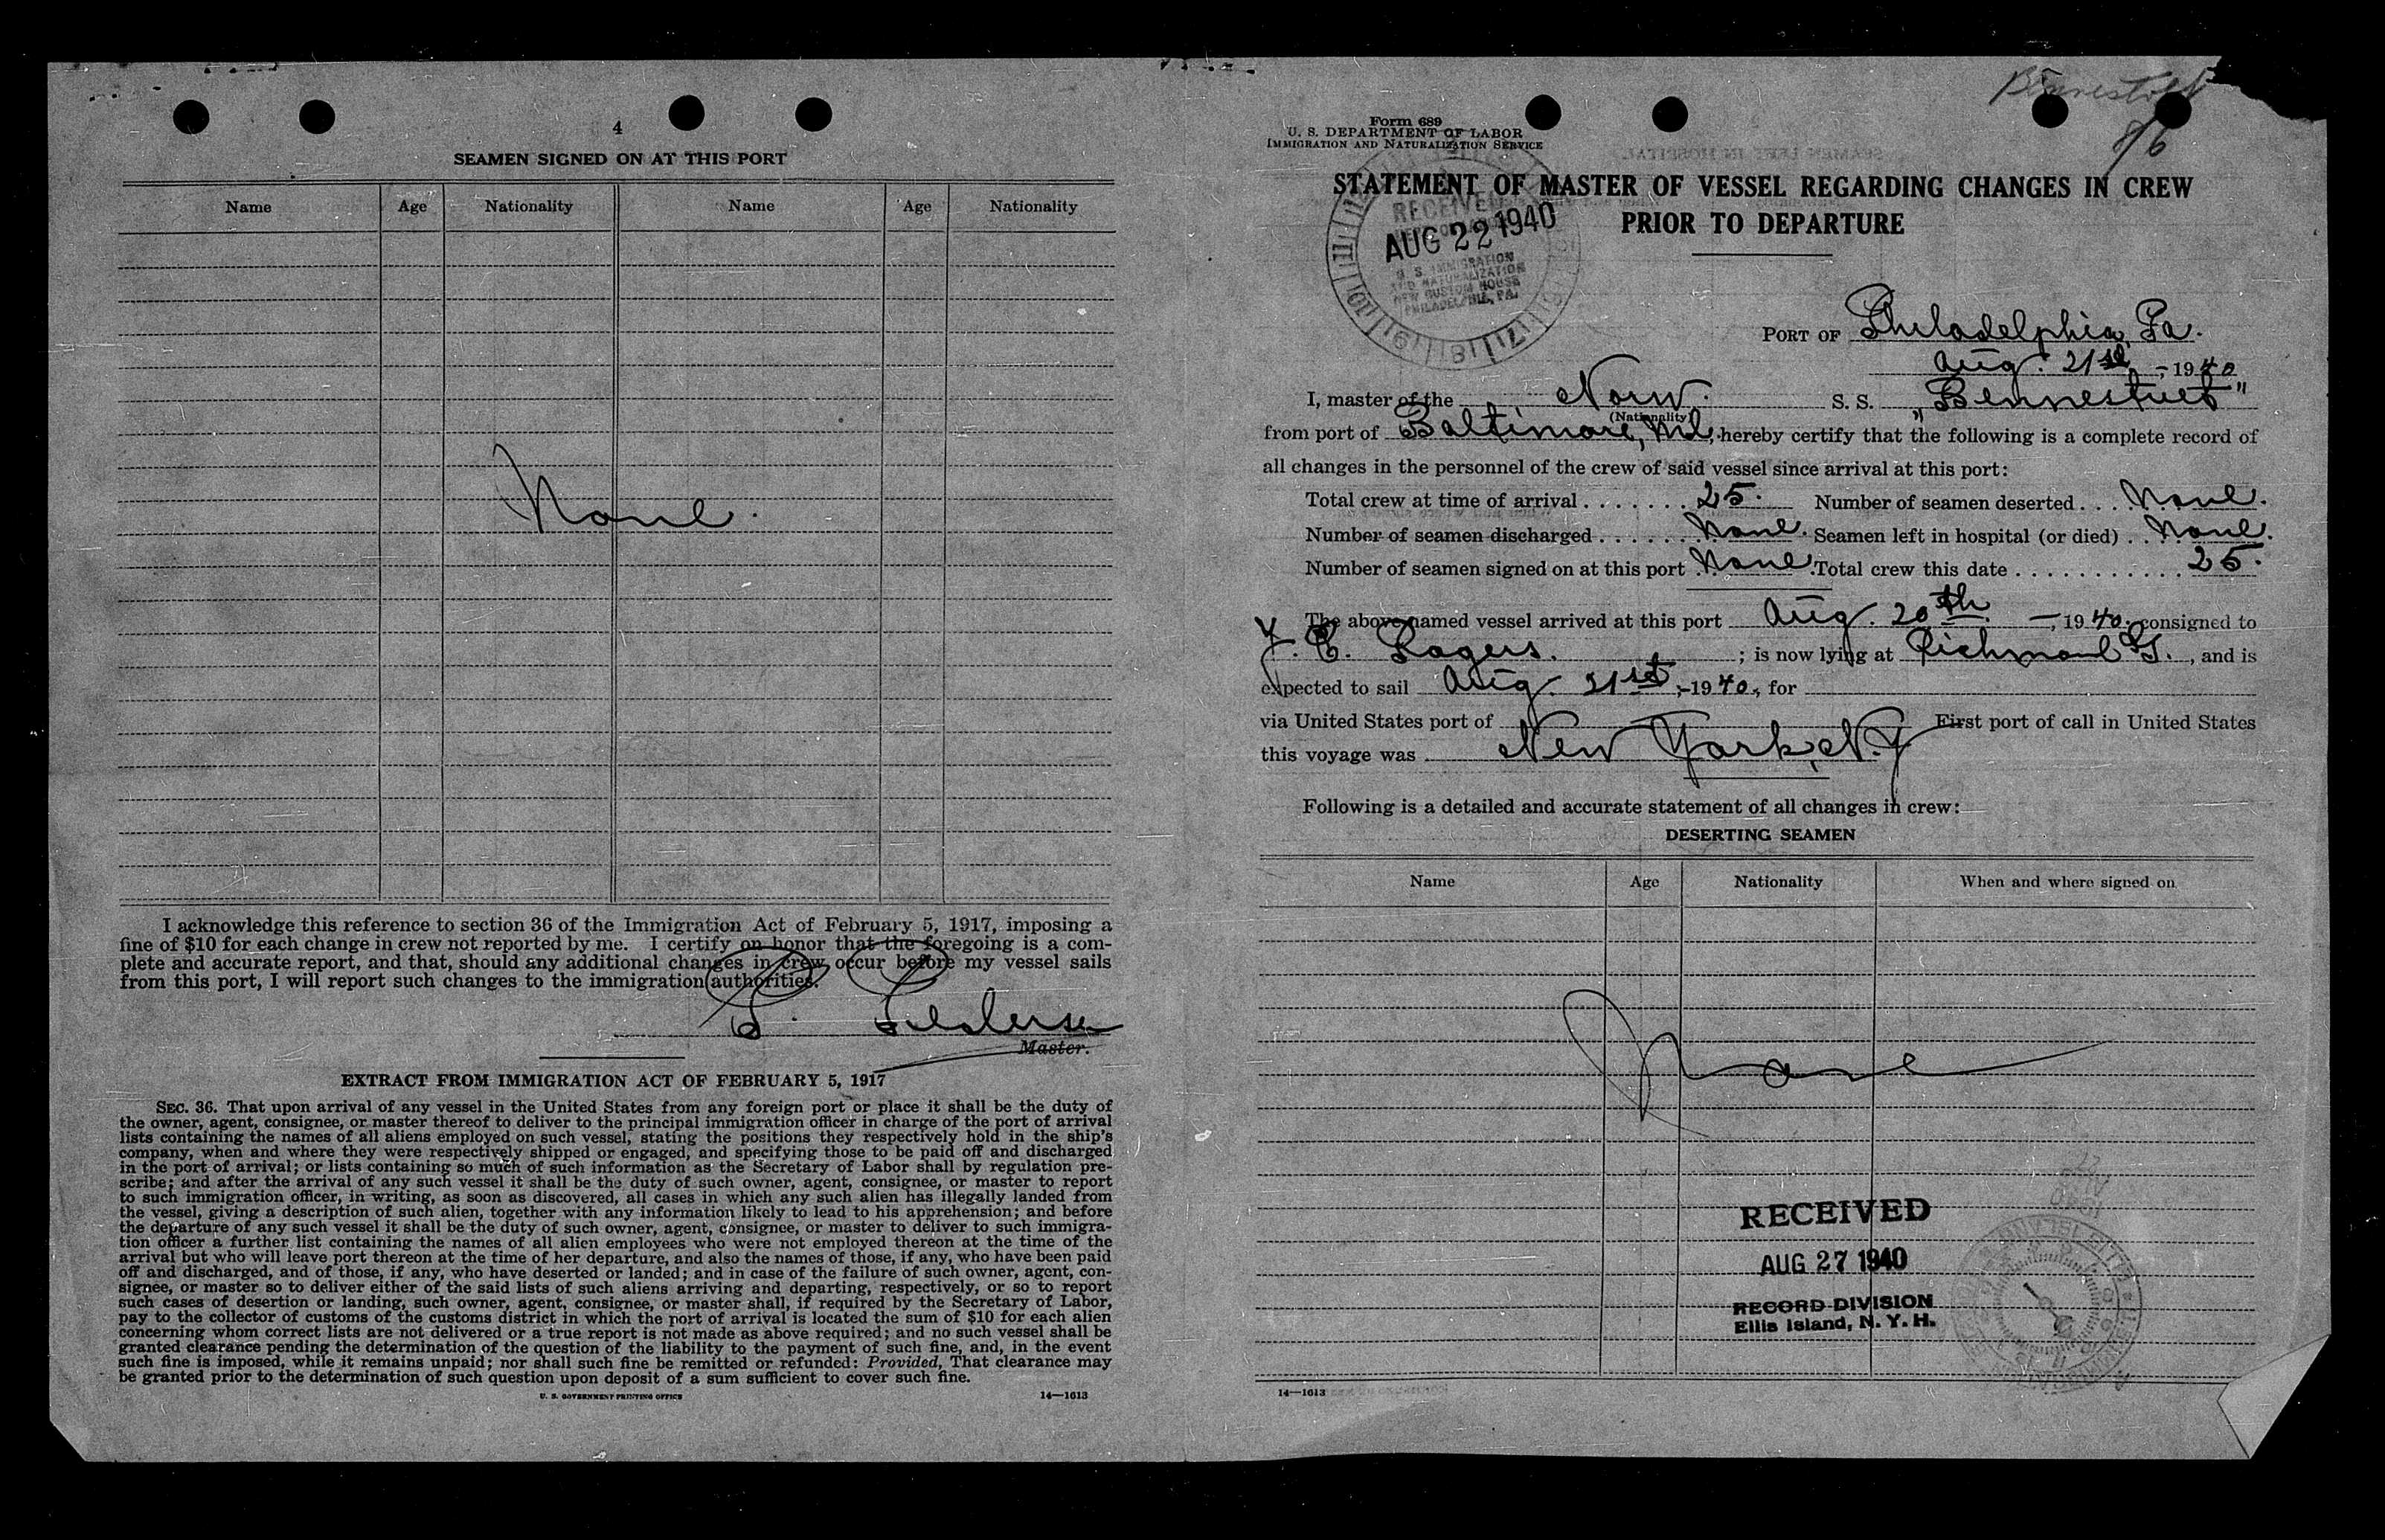 4
SEAMEN SIGNED ON AT THIS PORT
Name Age Nationality Name Age Nationality
None.
I acknowledge this reference to section 36 of the Immigration Act of February 5, 1917, imposing a
fine of $10 for each change in crew not reported by me. I certify on honor that the foregoing is a com-
plete and accurate report, and that, should any additional changes in crew occur before my vessel sails
from this port, I will report such changes to the immigration authorities.
P. Pedersen
Master.
EXTRACT FROM IMMIGRATION ACT OF FEBRUARY 5, 1917
SEC. 36. That upon arrival of any vessel in the United States from any foreign port or place it shall be the duty of
the owner, agent, consignee, or master thereof to deliver to the principal immigration officer in charge of the port of arrival
lists containing the names of all aliens employed on such vessel, stating the positions they respectively hold in the ship's
company, when and where they were respectively shipped or engaged, and specifying those to be paid off and discharged
in the port of arrival; or lists containing so much of such information as the Secretary of Labor shall by regulation pre-
scribe; and after the arrival of any such vessel it shall be the duty of such owner, agent, consignee, or master to report
to such immigration officer, in writing, as soon as discovered, all cases in which any such alien has illegally landed from
the vessel, giving a description of such alien, together with any information likely to lead to his apprehension; and before
the departure of any such vessel it shall be the duty of such owner, agent, consignee, or master to deliver to such immigra-
tion officer a further list containing the names of all alien employees who were not employed thereon at the time of the
arrival but who will leave port thereon at the time of her departure, and also the names of those, if any, who have been paid
off and discharged, and of those, if any, who have deserted or landed; and in case of the failure of such owner, agent, con-
signee, or master so to deliver either of the said lists of such aliens arriving and departing, respectively, or so to report
such cases of desertion or landing, such owner, agent, consignee, or master shall, if required by the Secretary of Labor,
pay to the collector of customs of the customs district in which the port of arrival is located the sum of $10 for each alien
concerning whom correct lists are not delivered or a true report is not made as above required; and no such vessel shall be
granted clearance pending the determination of the question of the liability to the payment of such fine, and, in the event
such fine is imposed, while it remains unpaid; nor shall such fine be remitted or refunded: Provided, That clearance may
be granted prior to the determination of such question upon deposit of a sum sufficient to cover such fine.
U. S. GOVERNMENT PRINTING OFFICE 14—1613
8/6
Form 689
U. S. DEPARTMENT OF LABOR
IMMIGRATION AND NATURALIZATION SERVICE
STATEMENT OF MASTER OF VESSEL REGARDING CHANGES IN CREW
PRIOR TO DEPARTURE
RECEIVED
AUG 22 1940
U. S. IMMIGRATION
AND NATURALIZATION
NEW CUSTOM HOUSE
PHILADELPHIA, PA.
PORT OF Philadelphia, Pa.
Aug. 21st, 1940
I, master of the Norw. S. S. „Bennestvet"
(Nationality)
from port of Baltimore, Md., hereby certify that the following is a complete record of
all changes in the personnel of the crew of said vessel since arrival at this port:
Total crew at time of arrival . . . . . . . 25. Number of seamen deserted . . . None.
Number of seamen discharged . . . . . . None. Seamen left in hospital (or died) . . None.
Number of seamen signed on at this port None. Total crew this date . . . . . . . . . . . . 25.
The above-named vessel arrived at this port Aug. 20th. —, 1940. consigned to
; is now lying at Richmond , and is
expected to sail Aug. 21st, -1940, for
via United States port of First port of call in United States
this voyage was New York, N.Y
Following is a detailed and accurate statement of all changes in crew:
DESERTING SEAMEN
Name Age Nationality When and where signed on
None
RECEIVED
AUG 27 1940
RECORD DIVISION
Ellis Island, N. Y. H.
14—1613